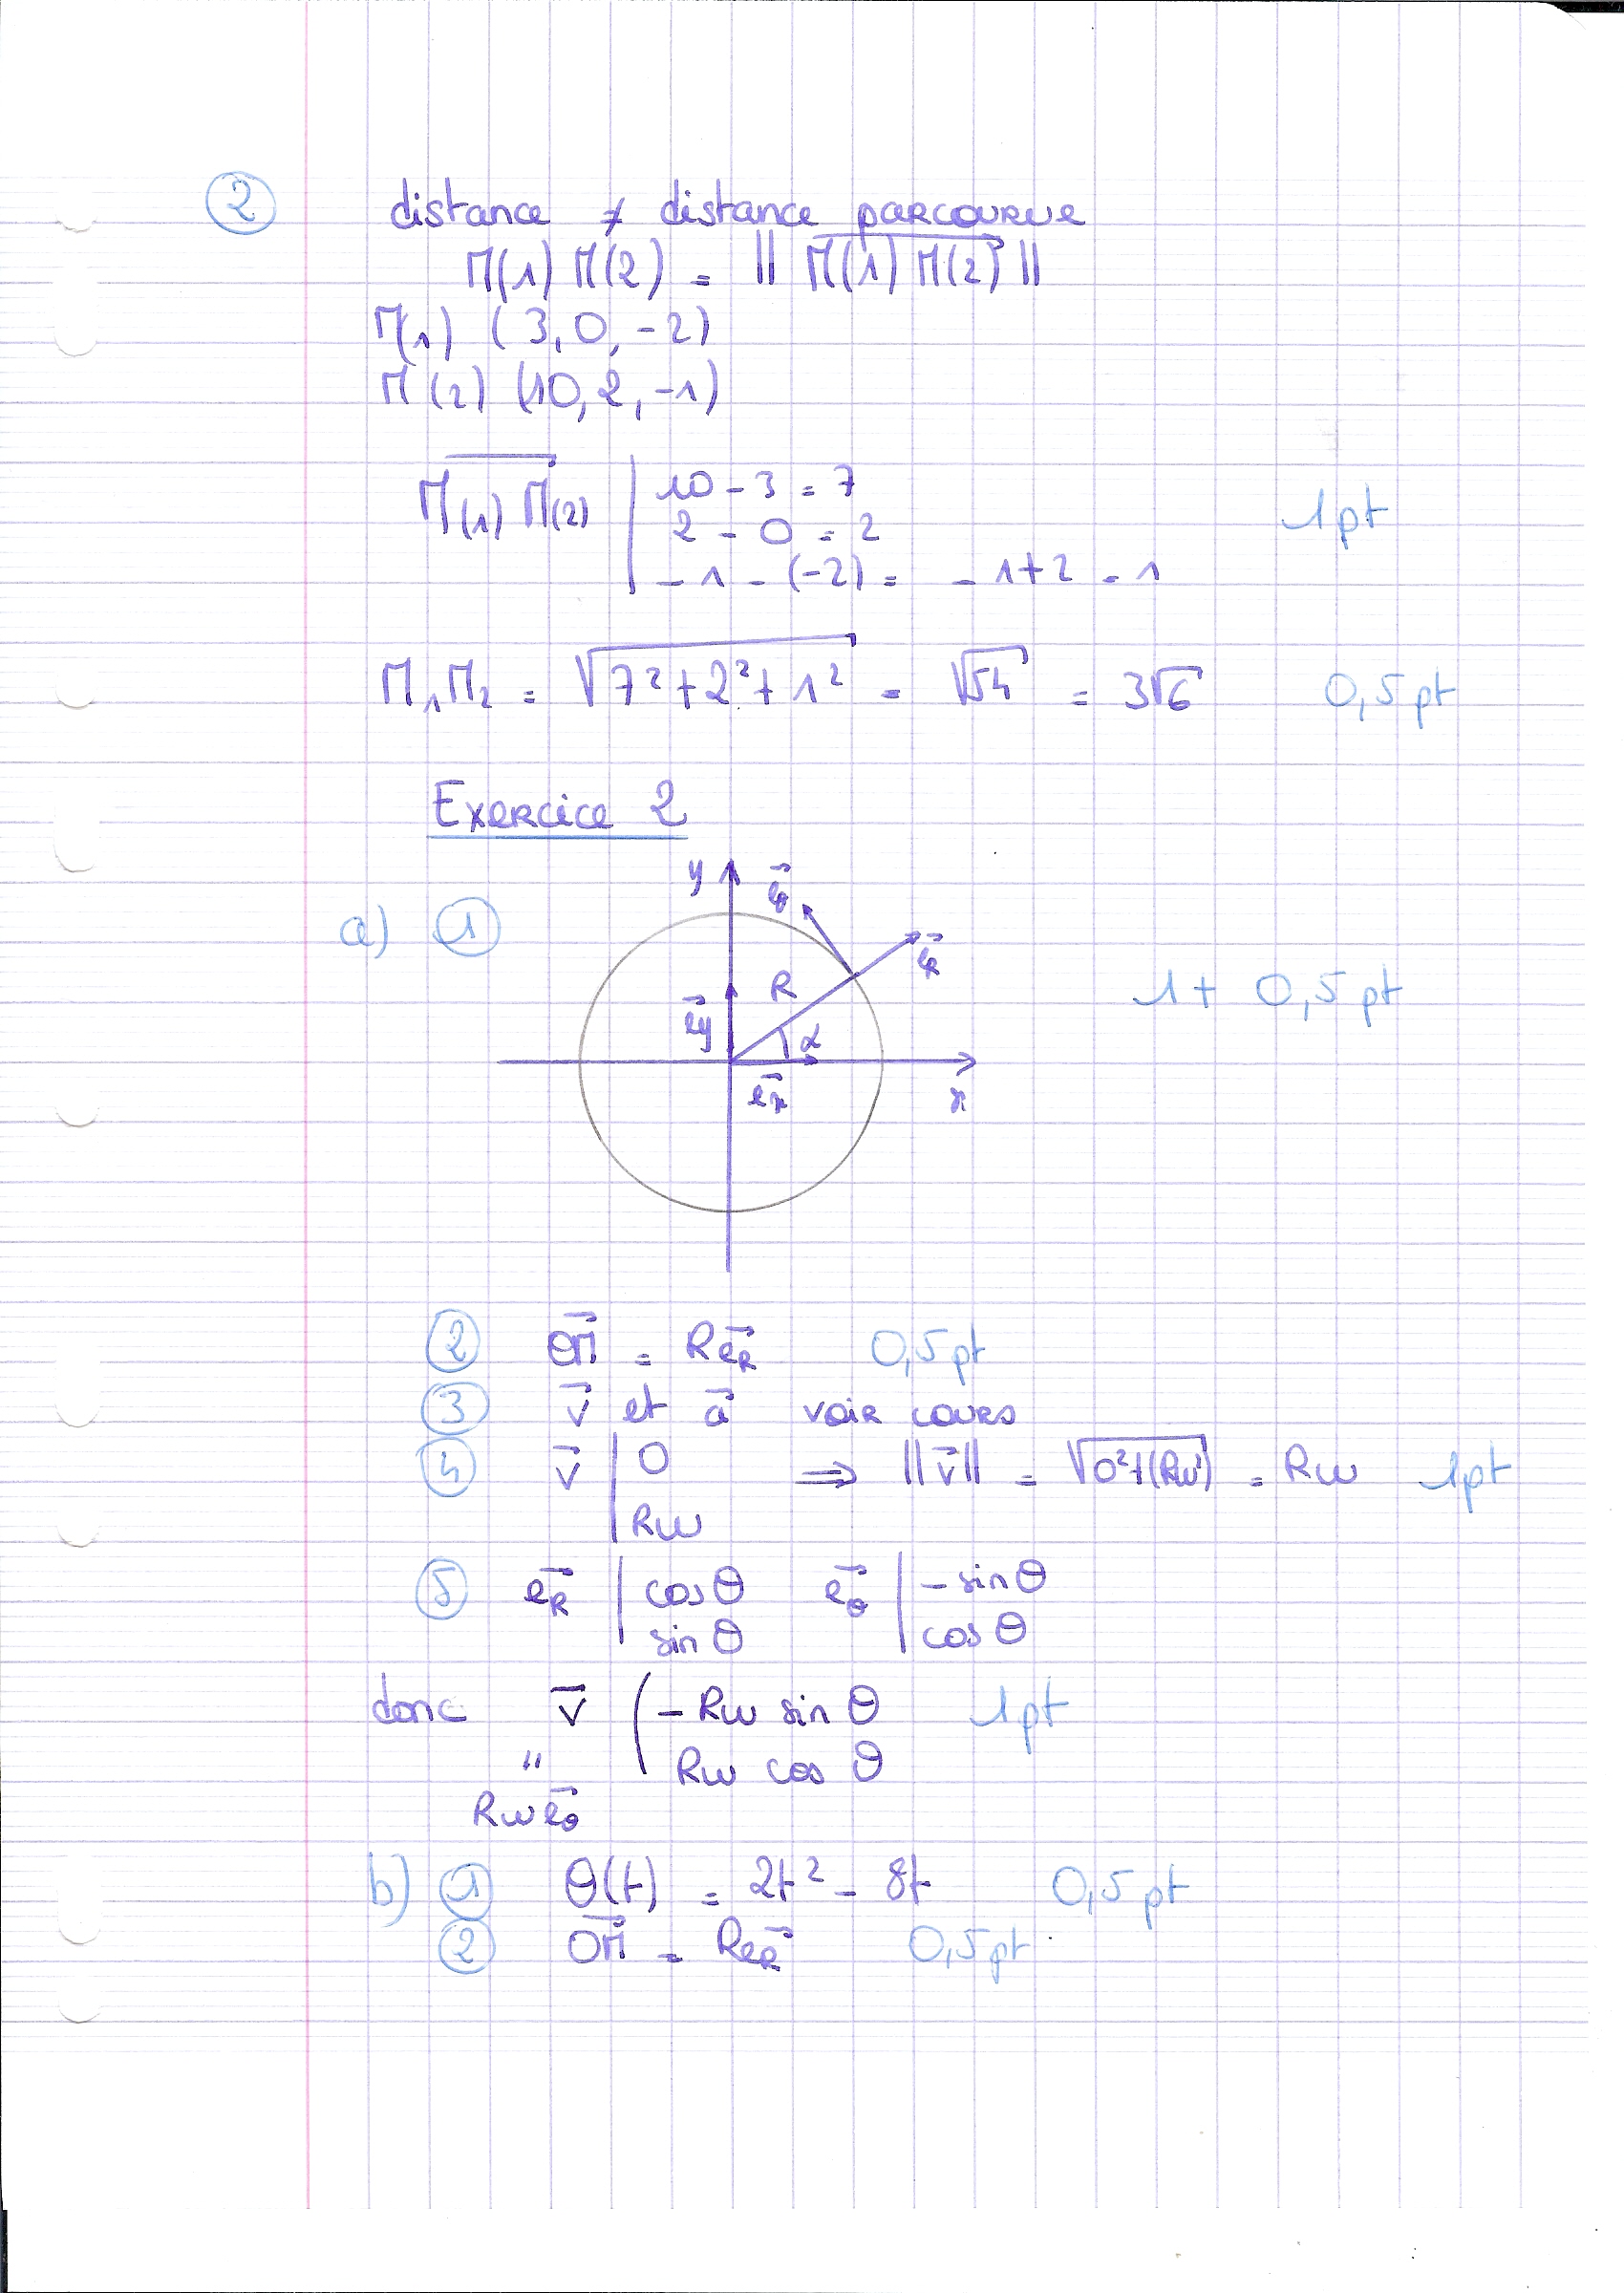 ② distance ≠ distance parcourue
M(1) M(2) = || M(1) M(2) ||
M(1) (3, 0, -2)
M(2) (10, 2, -1)
M(1) M(2) | 10 - 3 = 7
2 - 0 = 2 1pt
- 1 - (-2) = - 1 + 2 = 1
M₁M₂ = √(7² + 2² + 1²) = √54 = 3√6 0,5 pt
Exercice 2
a) ①
y
R
e⃗y
α
e⃗x
x
1 + 0,5 pt
② OM⃗ = R e⃗R 0,5 pt
③ v⃗ et a⃗ voir cours
④ v⃗ | 0 ⟹ ||v⃗|| = √(0² + (Rω)²) = Rω 1pt
Rω
⑤ e⃗R | cos θ e⃗θ | - sin θ
sin θ cos θ
donc v⃗ ( - Rω sin θ 1pt
" Rω cos θ
Rω e⃗θ
b) ① θ(t) = 2t² - 8t 0,5 pt
② OM⃗ = R e⃗R 0,5 pt